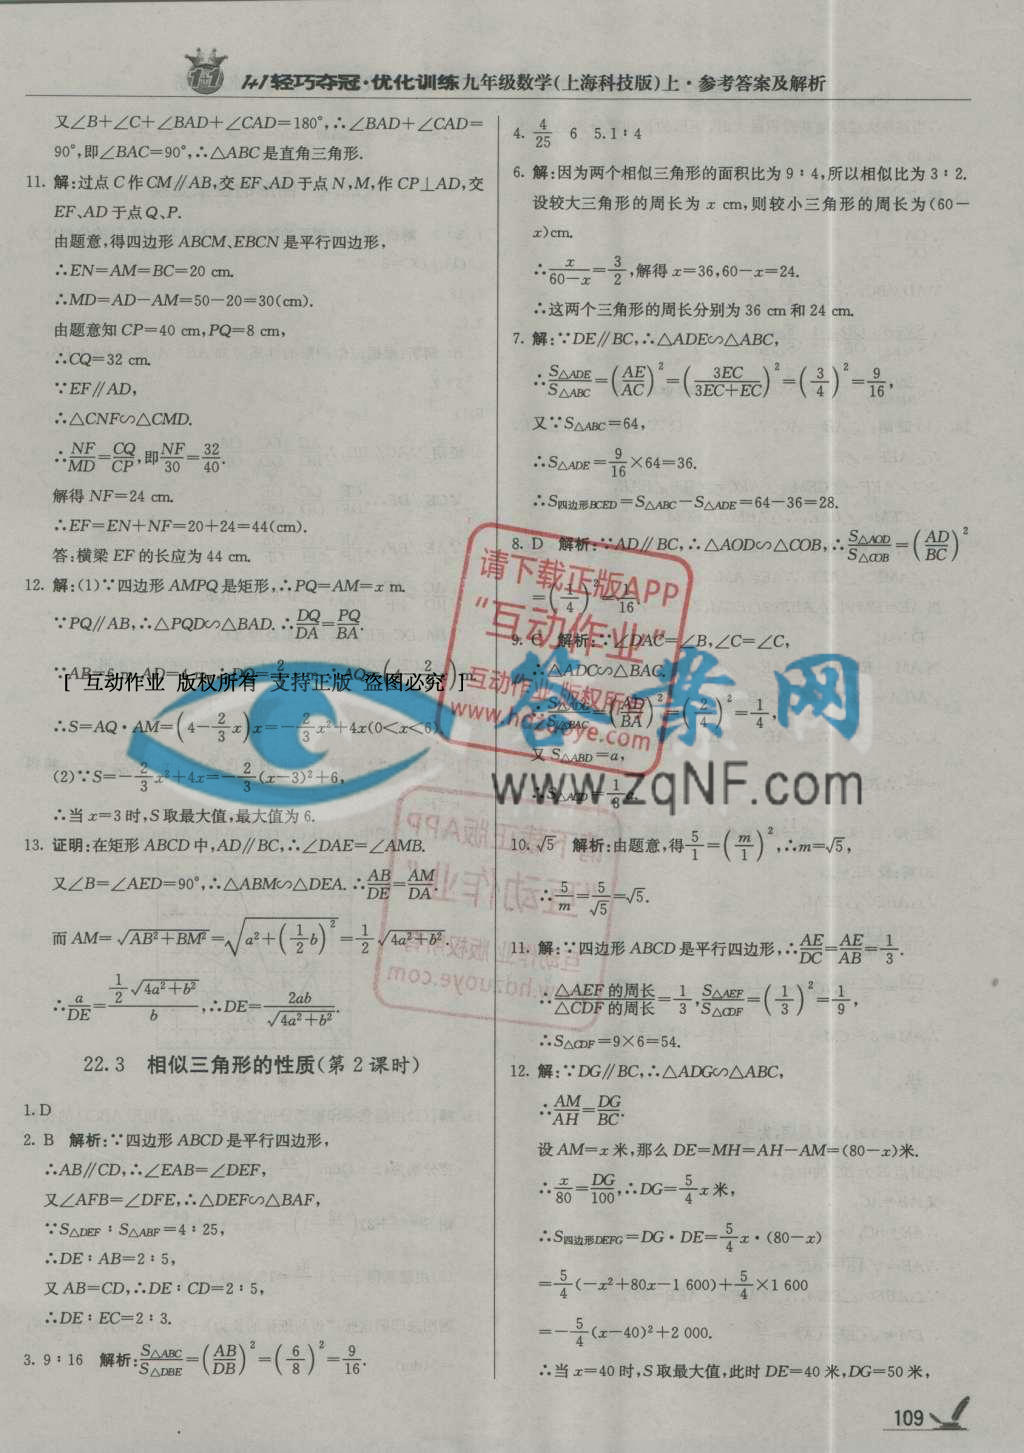 1+1轻巧夺冠·优化训练九年级数学(上海科技版)上·参考答案及解析
又∠B+∠C+∠BAD+∠CAD=180°,∴∠BAD+∠CAD=
90°,即∠BAC=90°,∴△ABC是直角三角形.
11. 解:过点C作CM∥AB,交EF、AD于点N,M,作CP⊥AD,交
EF、AD于点Q、P.
由题意,得四边形ABCM、EBCN是平行四边形,
∴EN=AM=BC=20 cm.
∴MD=AD-AM=50-20=30(cm).
由题意知CP=40 cm,PQ=8 cm,
∴CQ=32 cm.
∵EF∥AD,
∴△CNF∽△CMD.
∴NF/MD=CQ/CP,即NF/30=32/40.
解得NF=24 cm.
∴EF=EN+NF=20+24=44(cm).
答:横梁EF的长应为44 cm.
12. 解:(1)∵四边形AMPQ是矩形,∴PQ=AM=x m.
∵PQ∥AB,∴△PQD∽△BAD.∴DQ/DA=PQ/BA.
[ 互动作业 版权所有 支持正版 盗图必究 ]
∴S=AQ·AM=(4-2/3x)x=-2/3x²+4x(0<x<6).
(2)∵S=-2/3x²+4x=-2/3(x-3)²+6,
∴当x=3时,S取最大值,最大值为6.
13. 证明:在矩形ABCD中,AD∥BC,∴∠DAE=∠AMB.
又∠B=∠AED=90°,∴△ABM∽△DEA.∴AB/DE=AM/DA.
而AM=√(AB²+BM²)=√(a²+(1/2b)²)=1/2√(4a²+b²).
∴a/DE=(1/2√(4a²+b²))/b,∴DE=2ab/√(4a²+b²).
22.3 相似三角形的性质(第2课时)
1. D
2. B 解析:∵四边形ABCD是平行四边形,
∴AB∥CD,∴∠EAB=∠DEF,
又∠AFB=∠DFE,∴△DEF∽△BAF,
∵S△DEF∶S△ABF=4∶25,
∴DE∶AB=2∶5,
又AB=CD,∴DE∶CD=2∶5,
∴DE∶EC=2∶3.
3. 9∶16 解析:S△ABC/S△DBE=(AB/DB)²=(6/8)²=9/16.
4. 4/25 6 5. 1∶4
6. 解:因为两个相似三角形的面积比为9∶4,所以相似比为3∶2.
设较大三角形的周长为x cm,则较小三角形的周长为(60-
x)cm.
∴x/(60-x)=3/2,解得x=36,60-x=24.
∴这两个三角形的周长分别为36 cm和24 cm.
7. 解:∵DE∥BC,∴△ADE∽△ABC,
∴S△ADE/S△ABC=(AE/AC)²=(3EC/(3EC+EC))²=(3/4)²=9/16,
又∵S△ABC=64,
∴S△ADE=9/16×64=36.
∴S四边形BCED=S△ABC-S△ADE=64-36=28.
8. D 解析:∵AD∥BC,∴△AOD∽△COB,∴S△AOD/S△COB=(AD/BC)²
=(1/4)²=1/16.
9. C 解析:∵∠DAC=∠B,∠C=∠C,
∴△ADC∽△BAC.
∴S△ADC/S△BAC=(AD/BA)²=(2/4)²=1/4,
又S△ABD=a,
10. √5 解析:由题意,得5/1=(m/1)²,∴m=√5,
∴5/m=5/√5=√5.
11. 解:∵四边形ABCD是平行四边形,∴AE/DC=AE/AB=1/3.
∴△AEF的周长/△CDF的周长=1/3,S△AEF/S△CDF=(1/3)²=1/9,
∴S△CDF=9×6=54.
12. 解:∵DG∥BC,∴△ADG∽△ABC,
∴AM/AH=DG/BC.
设AM=x米,那么DE=MH=AH-AM=(80-x)米.
∴x/80=DG/100,∴DG=5/4x米,
∴S四边形DEFG=DG·DE=5/4x·(80-x)
=5/4(-x²+80x-1 600)+5/4×1 600
=-5/4(x-40)²+2 000.
∴当x=40时,S取最大值,此时DE=40米,DG=50米,
109
请下载正版APP
“互动作业”
互动作业 版权所有
www.hdzuoye.com
答案网
www.zqNF.com